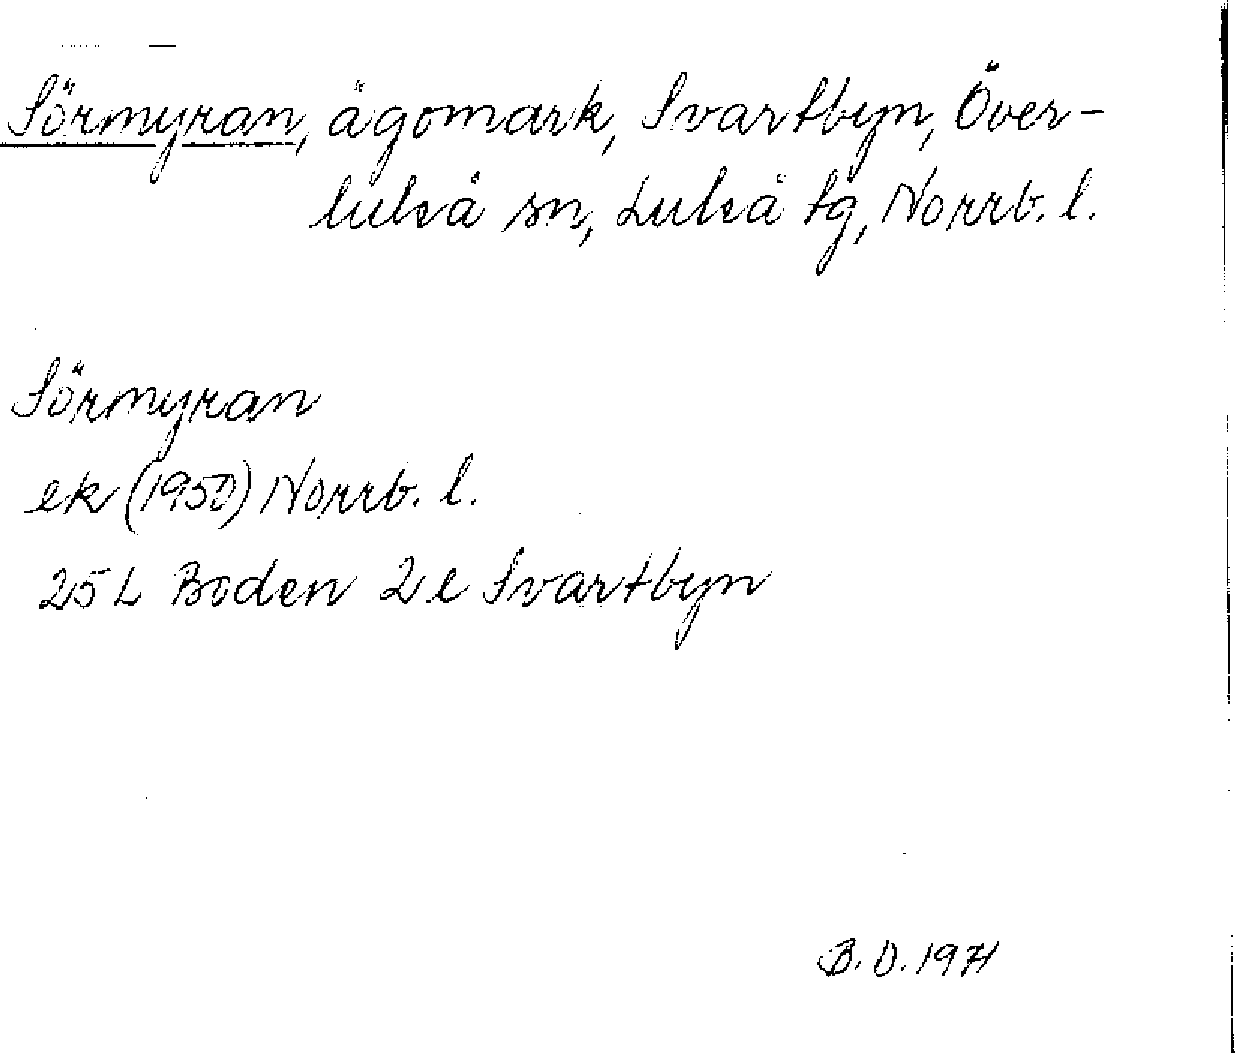 Sörmyran, ägomark, Svartbyn, Över-
luleå sn, Luleå tg, Norrb. l.
Sörmyran
ek (1950) Norrb. l.
25 L Boden 2 e Svartbyn
B. D. 1971